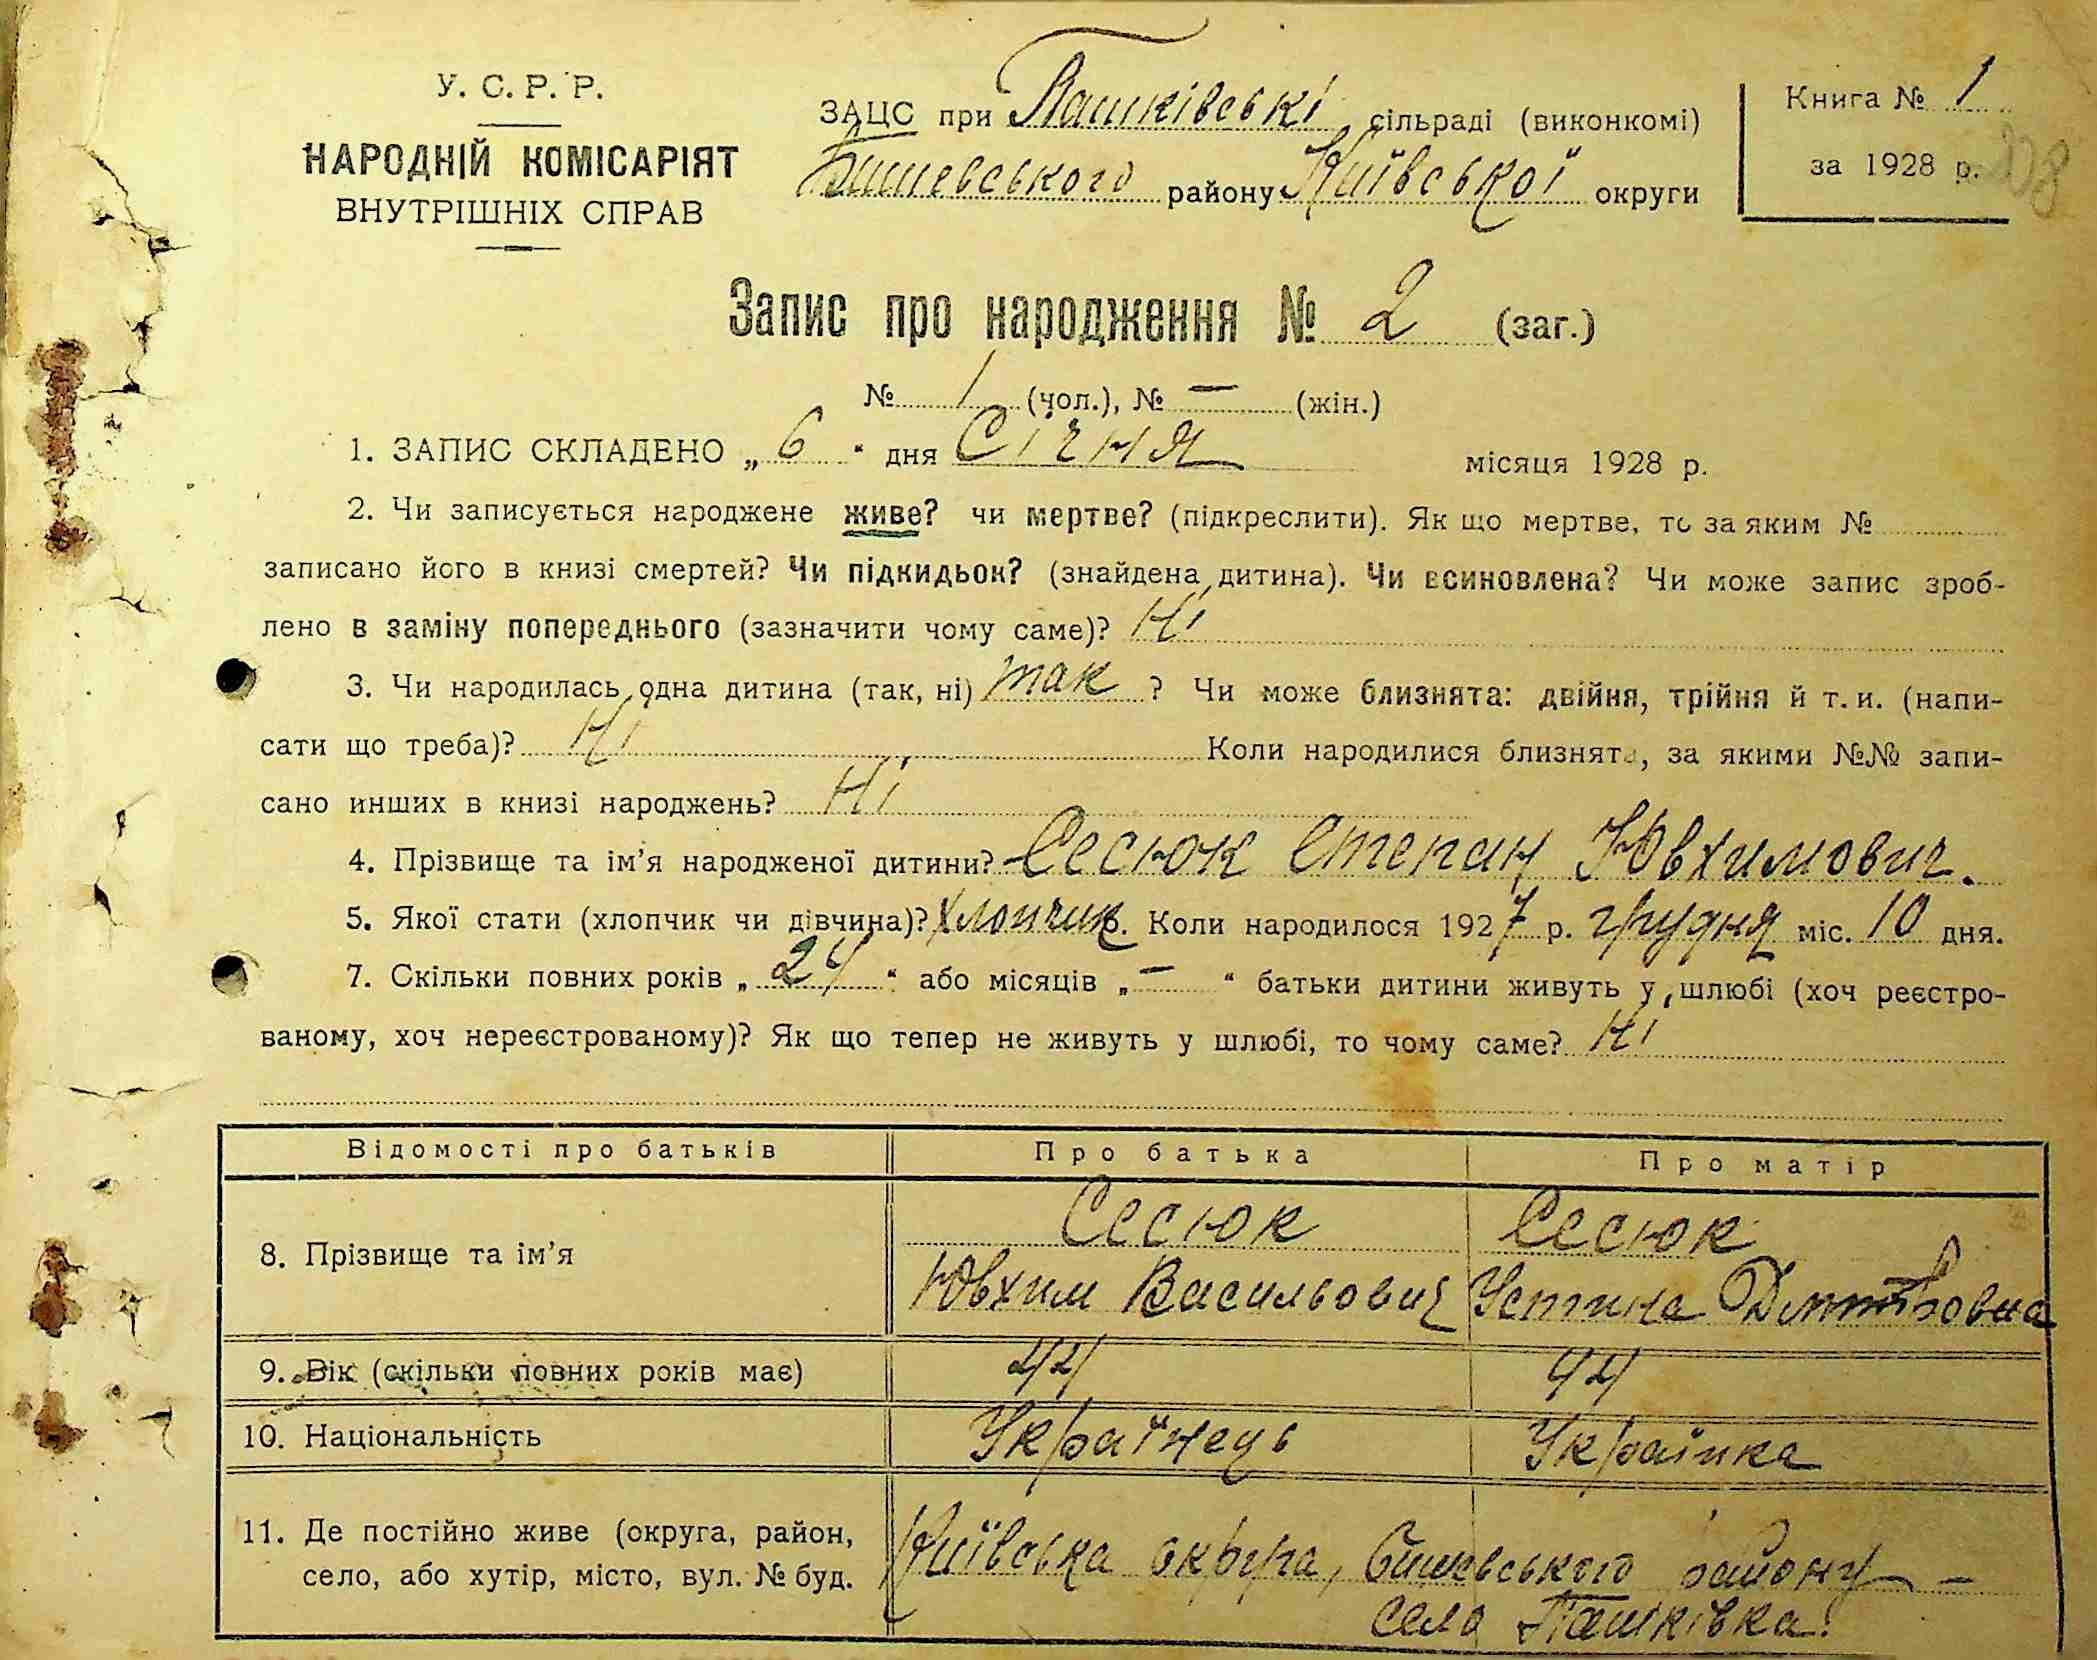 У. С. Р. Р.
НАРОДНІЙ КОМІСАРІЯТ
ВНУТРІШНІХ СПРАВ
ЗАЦС при Пашківські сільраді (виконкомі)
Бишевського району Київської округи
Книга № 1
за 1928 р.
208
Запис про народження № 2 (заг.)
№ 1 (чол.), № — (жін.)
1. ЗАПИС СКЛАДЕНО „ 6 “ дня Січня місяця 1928 р.
2. Чи записується народжене живе? чи мертве? (підкреслити). Як що мертве, то за яким №
записано його в книзі смертей? Чи підкидьок? (знайдена дитина). Чи всиновлена? Чи може запис зроб-
лено в заміну попереднього (зазначити чому саме)? Ні
3. Чи народилась одна дитина (так, ні) так ? Чи може близнята: двійня, трійня й т. и. (напи-
сати що треба)? Ні Коли народилися близнята, за якими №№ запи-
сано инших в книзі народжень? Ні
4. Прізвище та ім’я народженої дитини? Сесюк Степан Ювхимович.
5. Якої стати (хлопчик чи дівчина)? Хлопчик 6. Коли народилося 1927 р. грудня міс. 10 дня.
7. Скільки повних років „ 24 “ або місяців „ — “ батьки дитини живуть у шлюбі (хоч реєстро-
ваному, хоч нереєстрованому)? Як що тепер не живуть у шлюбі, то чому саме? Ні
Відомості про батьків Про батька Про матір
8. Прізвище та ім’я Сесюк Сесюк
Ювхим Васильович Устина Дмитровна
9. Вік (скільки повних років має) 44 44
10. Національність Українець Українка
11. Де постійно живе (округа, район, Київська округа, Бишевського району —
село, або хутір, місто, вул. № буд. село Пашківка.